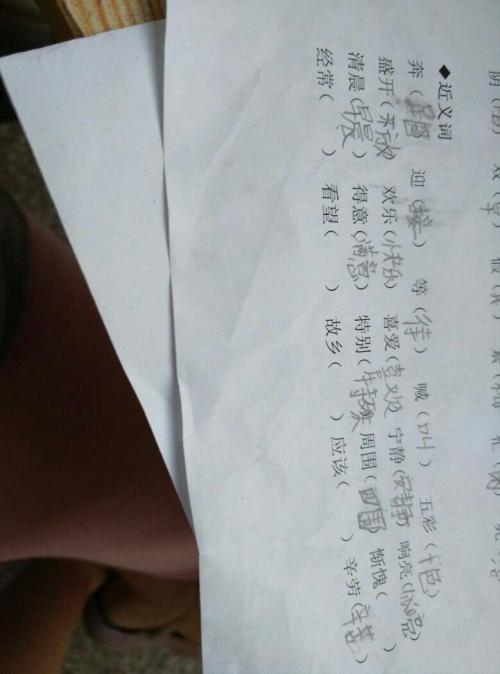 ◆近义词
奔（ ） 迎（接） 等（待） 喊（叫） 五彩（色）
盛开（开放） 欢乐（快乐） 喜爱（喜欢） 宁静（安静） 响亮（亮）
清晨（早晨） 得意（满意） 特别（特殊） 周围（四） 惭愧（ ）
经常（ ） 看望（ ） 故乡（ ） 应该（ ） 辛劳（辛苦）